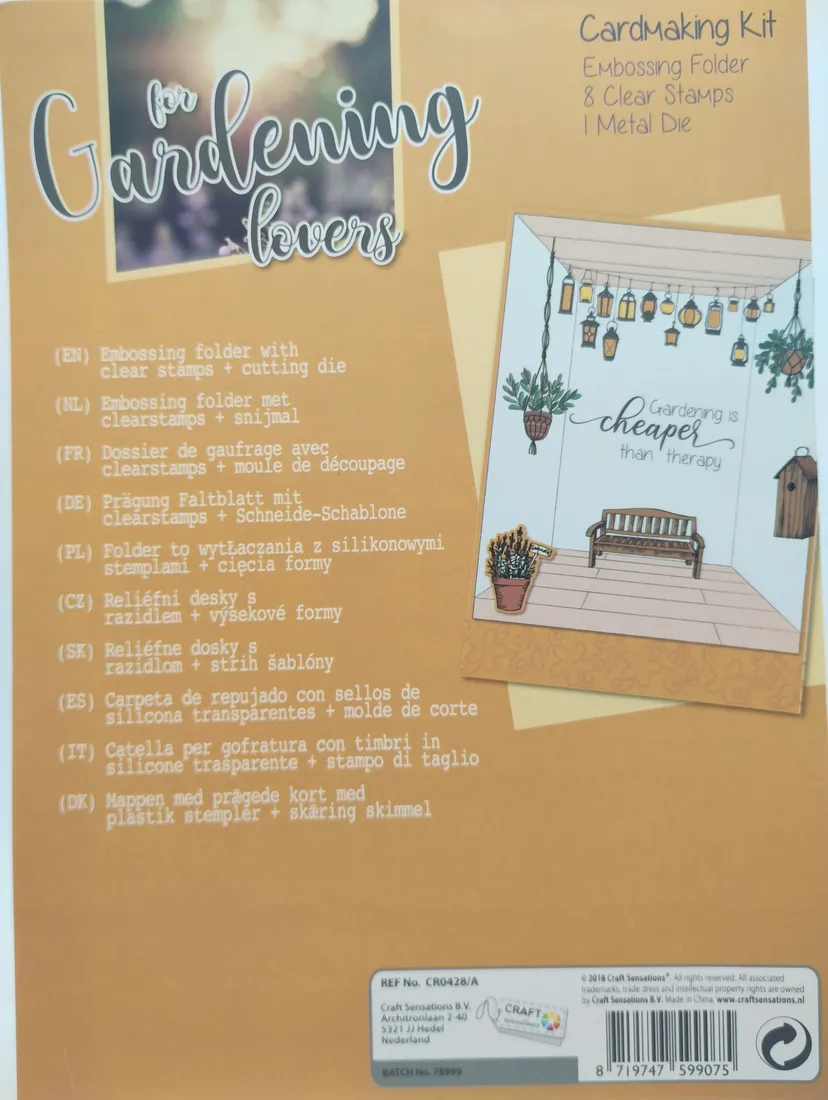 for
Gardening
lovers
Cardmaking Kit
Embossing Folder
8 Clear Stamps
1 Metal Die
Gardening is
cheaper
than therapy
(EN) Embossing folder with
clear stamps + cutting die
(NL) Embossing folder met
clearstamps + snijmal
(FR) Dossier de gaufrage avec
clearstamps + moule de découpage
(DE) Prägung Faltblatt mit
clearstamps + Schneide-Schablone
(PL) Folder to wytŁaczania z silikonowymi
stemplami + cięcia formy
(CZ) Reliéfni desky s
razidlem + výsekové formy
(SK) Reliéfne dosky s
razidlom + strih šablóny
(ES) Carpeta de repujado con sellos de
silicona transparentes + molde de corte
(IT) Catella per gofratura con timbri in
silicone trasparente + stampo di taglio
(DK) Mappen med prægede kort med
plastik stempler + skæring skimmel
REF No. CR0428/A
Craft Sensations B.V.
Architronlaan 2-40
5321 JJ Hedel
Nederland
BATCH No. 78999
CRAFT
sensations
© 2018 Craft Sensations® All rights reserved. All associated
trademarks, trade dress and intellectual property rights are owned
by Craft Sensations B.V. Made in China. www.craftsensations.nl
8 719747 599075